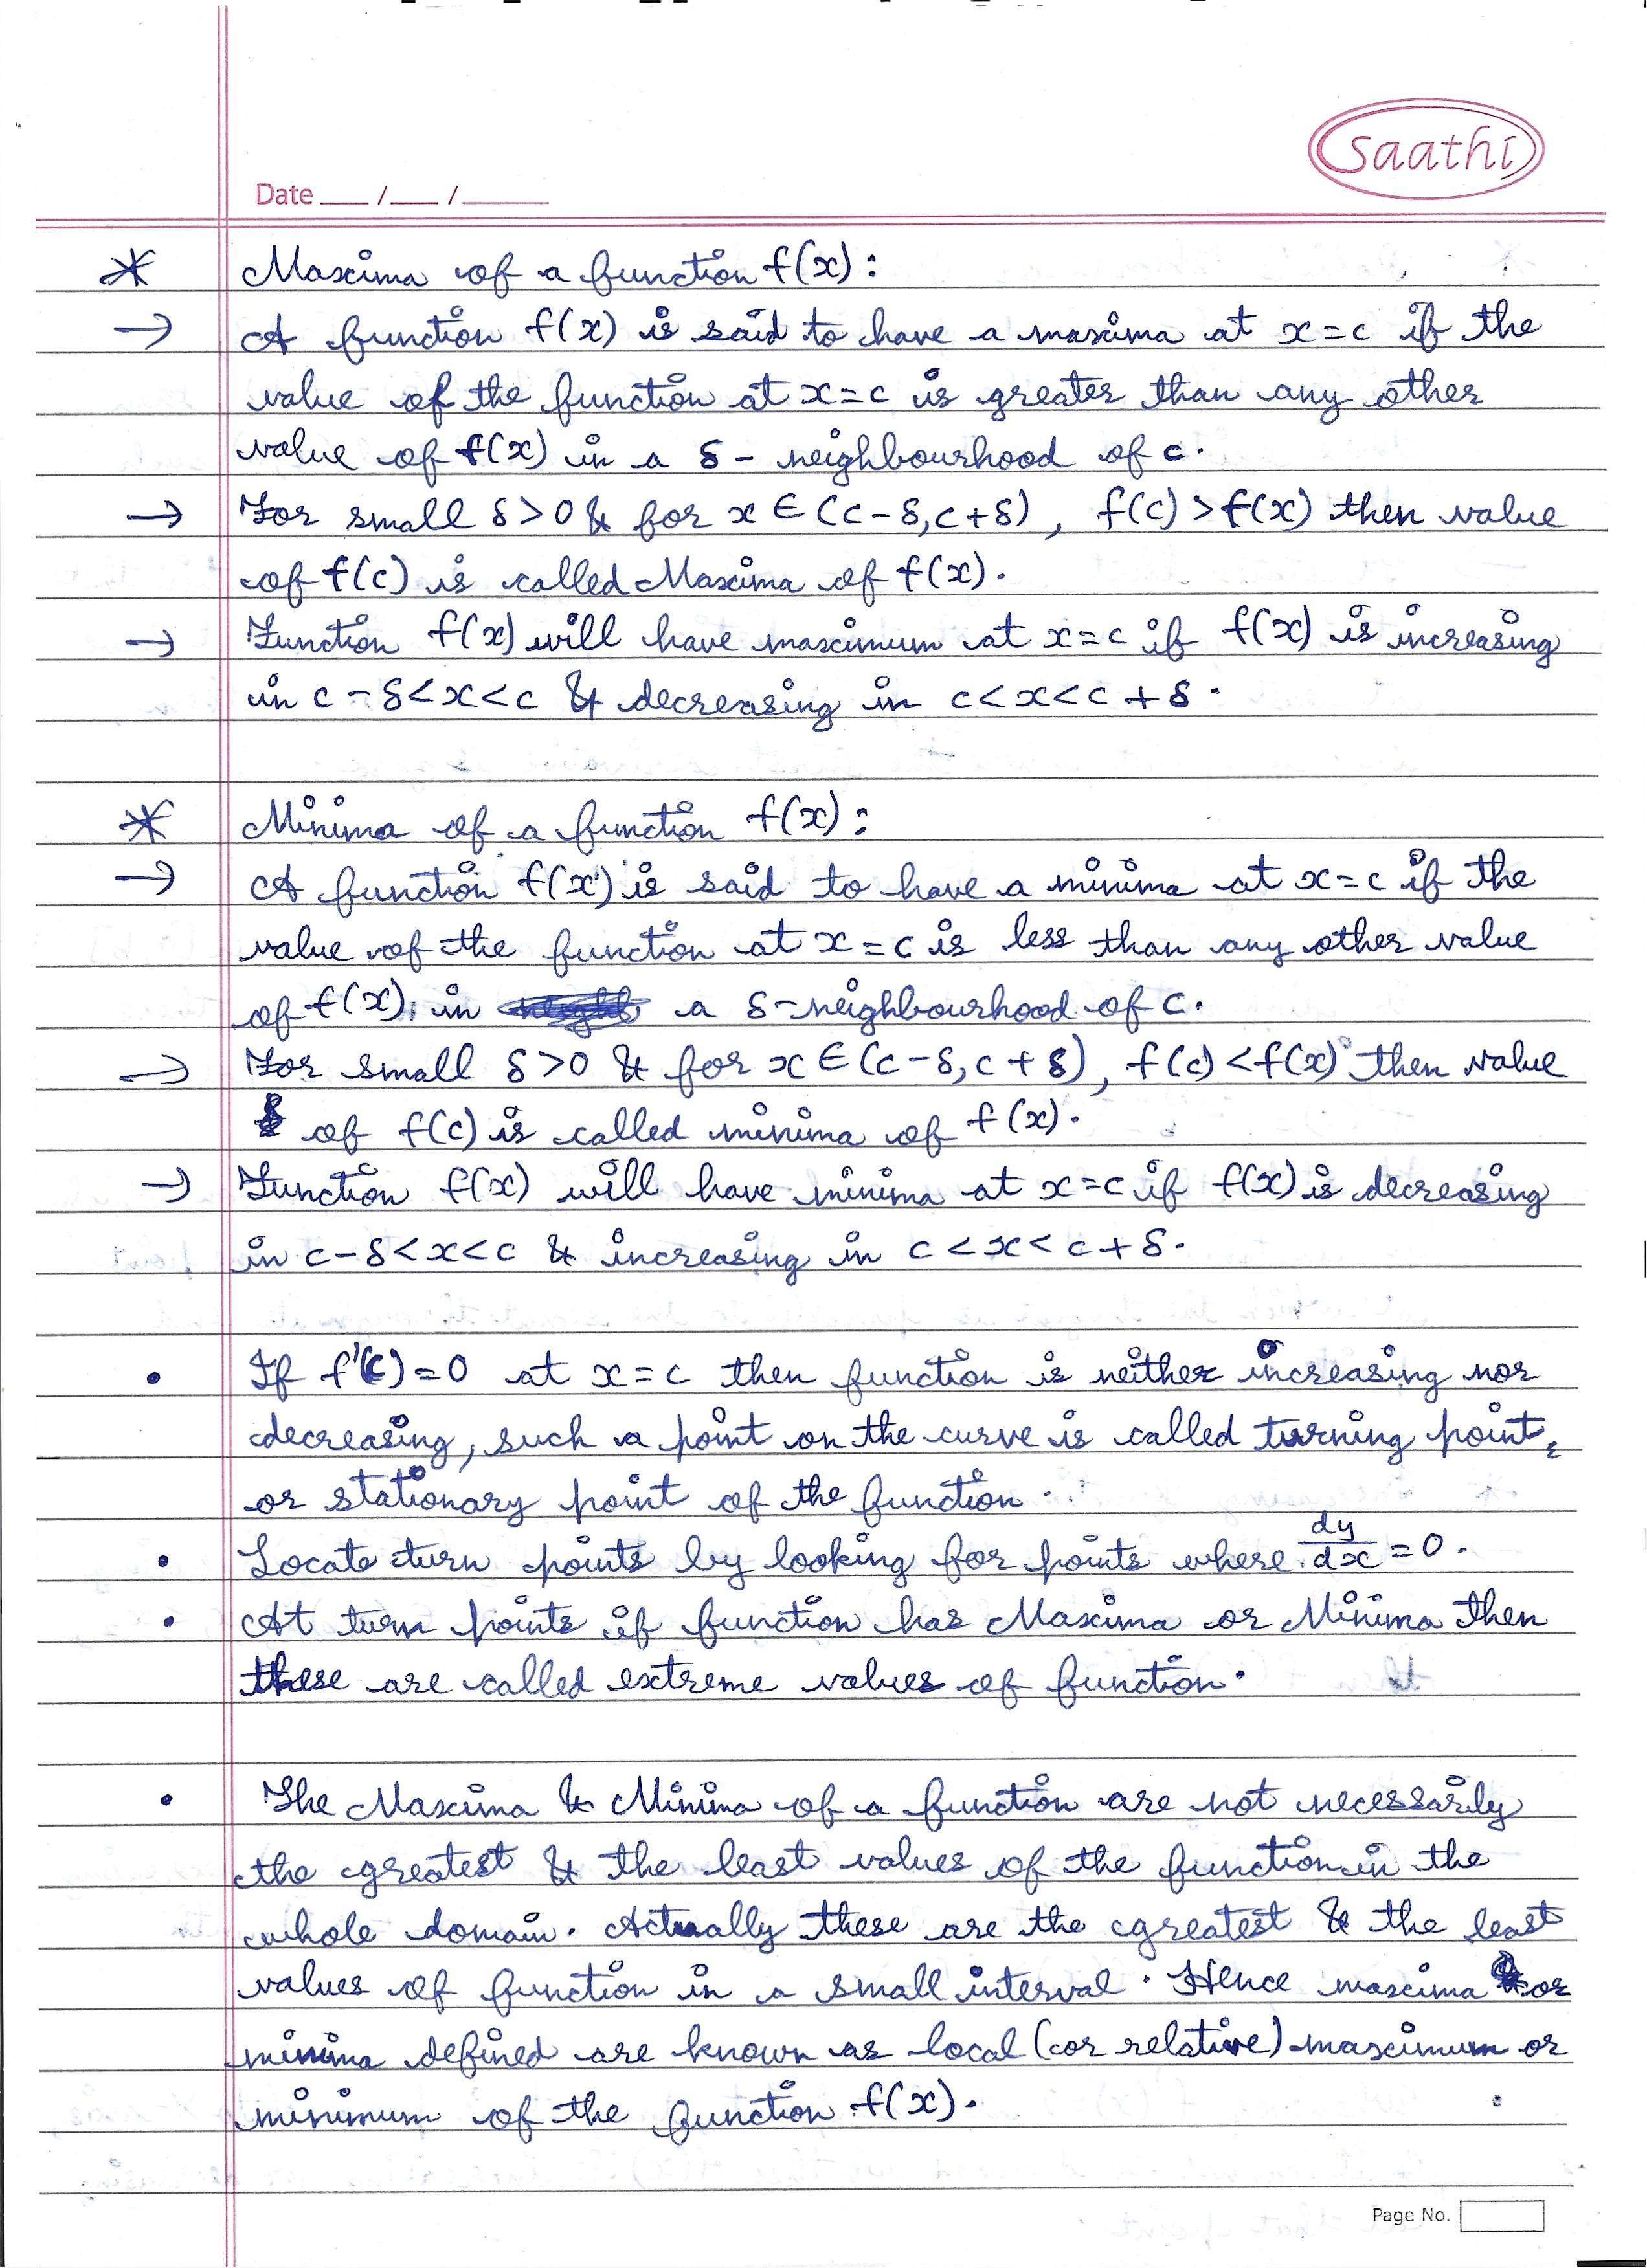 Saathi
Date ___ / ___ / _____
* Maxima of a function f(x) :
→ A function f(x) is said to have a maxima at x=c if the
value of the function at x=c is greater than any other
value of f(x) in a δ - neighbourhood of c.
→ For small δ>0 & for x ∈ (c-δ, c+δ), f(c) > f(x) then value
of f(c) is called Maxima of f(x).
→ Function f(x) will have maximum at x=c if f(x) is increasing
in c-δ<x<c & decreasing in c<x<c+δ.
* Minima of a function f(x) :
→ A function f(x) is said to have a minima at x=c if the
value of the function at x=c is less than any other value
of f(x) in a δ-neighbourhood of c.
→ For small δ>0 & for x ∈ (c-δ, c+δ), f(c) < f(x) then value
of f(c) is called minima of f(x).
→ Function f(x) will have minima at x=c if f(x) is decreasing
in c-δ<x<c & increasing in c<x<c+δ.
• If f'(c)=0 at x=c then function is neither increasing nor
decreasing, such a point on the curve is called turning point
or stationary point of the function.
• Locate turn points by looking for points where dy/dx = 0.
• At turn points if function has Maxima or Minima then
these are called extreme values of function.
• The Maxima & Minima of a function are not necessarily
the greatest & the least values of the function in the
whole domain. Actually these are the greatest & the least
values of function in a small interval. Hence maxima or
minima defined are known as local (or relative) maximum or
minimum of the function f(x).
Page No.